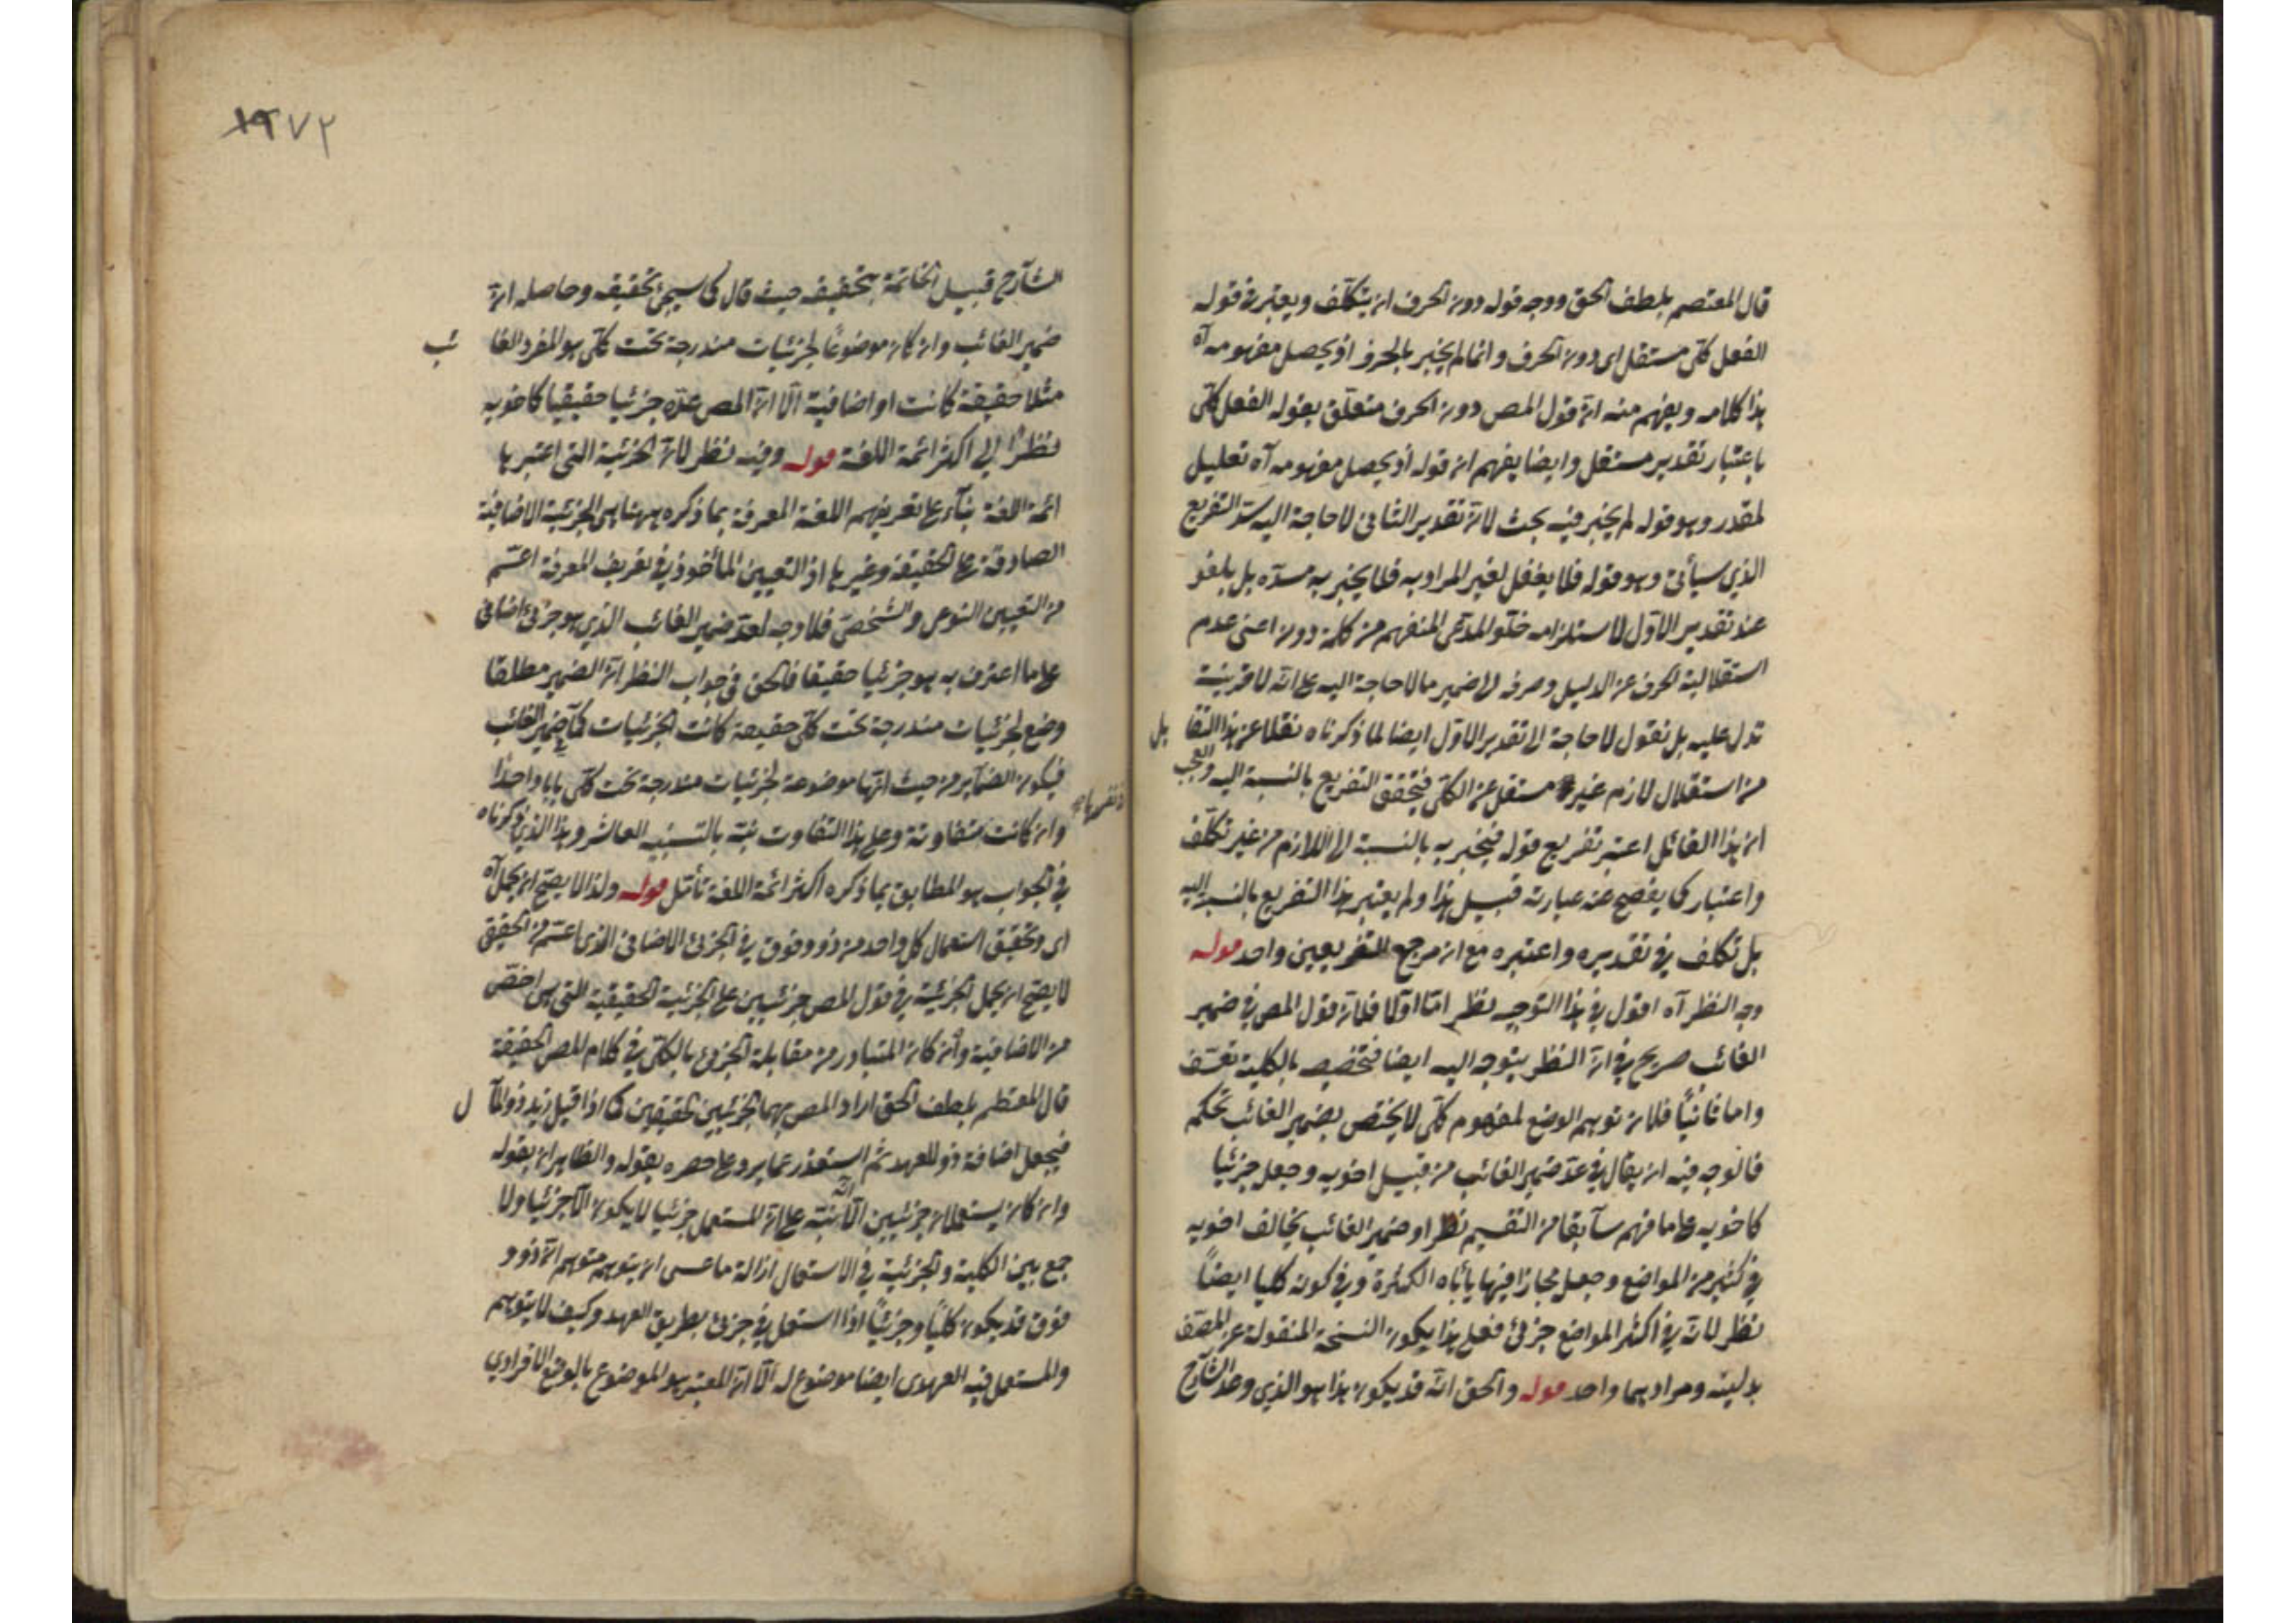 قال المعتصم بلطف الحق ووجه قوله دون الحرف ان يتكلف ويعتبر في قوله
الفعل كلى مستقل اى دون الحرف وانما لم يخبر بالحرف اذ يحصل مفهومه آه
هذا كلامه ويفهم منه ان قول المص دون الحرف متعلق بقوله الفعل كلى
باعتبار تقدير مستقل وايضا يفهم ان قوله اذ يحصل مفهومه آه تعليل
لمقدر وهو قوله لم يخبر فيه بحث لان تقدير الثانى لا حاجة اليه سد التفريع
الذي سيأتى وهو قوله فلا يعقل لغير المراد به فلا يخبر به مسده بل يلغو
عند تقدير الاول لاستلزامه خلو المدعى المنفهم من كلمة دون اعنى عدم
استقلالية الحرف عن الدليل وصرفه الى ضمير ما لا حاجة اليه على انه لا قرينة
تدل عليه بل نقول لا حاجة الى تقدير الاول ايضا لما ذكرناه نقلا عن هذا القا يل
من استقلال لازم غير مستقل عن الكلى فيتحقق التفريع بالنسبة اليه والعجب
ان هذا القائل اعتبر تفريع قوله فيخبر به بالنسبة الى اللازم من غير تكلف
واعتبار كما يفصح عنه عبارته قبيل هذا ولم يعتبر هذا التفريع بالنسبة اليه
بل تكلف في تقديره واعتبره مع ان مرجع التفريعين واحد قوله
وجه النظر آه اقول في هذا التوجيه نظر اما اولا فلان قول المص في ضمير
الغائب صريح في ان النظر يتوجه اليه ايضا فتخصيصه بالكلية تعسف
واما ثانيا فلان توهم الوضع لمفهوم كلى لا يختص بضمير الغائب تحكم
فالوجه فيه ان يقال في عد ضمير الغائب من قبيل اخويه وجعل جزئيا
كاخويه على ما فهم سابقا من التقسيم نظر او ضمير الغائب يخالف اخويه
في كثير من المواضع وجعل مجازا فيها يأباه الكثرة وفي كونه كليا ايضاً
نظر لانه في اكثر المواضع جزئى فعلى هذا يكون النسخة المنقولة عن المصنف
بدليته ومراد بهما واحد قوله والحق انه قد يكون هذا هو الذي وعد الشارح
١٩٧٢
الشارح قبيل الخاتمة بتحقيقه حيث قال كما سيجئ تحقيقه وحاصله ان
ضمير الغائب وان كان موضوعًا لجزئيات مندرجة تحت كلى هو المفرد الغا ئب
مثلا حقيقة كانت او اضافية الا ان المص عده جزئيا حقيقيا كاخويه
نظرًا الى اكثر ائمة اللغة قوله وفيه نظر لان الجزئية التى اعتبرها
ائمة اللغة بناء على تعريفهم اللغة المعرفة بما ذكره ههنا هى الجزئية الاضافية
الصادقة على الحقيقة وغيرها اذ التعيين المأخوذ في تعريف المعرفة اعم
من التعيين النوعى والشخصى فلا وجه لعد ضمير الغائب الذي هو جزئى اضافى
على ما اعترف به هو جزئيا حقيقيا فالحق في جواب النظر ان الضمير مطلقا
وضع لجزئيات مندرجة تحت كلى حقيقة كانت الجزئيات كما في ضمير الغائب
فيكون الضماير من حيث انها موضوعة لجزئيات مندرجة تحت كلى بابا واحدًا
وان كانت متفاوتة وعلى هذا التفاوت نبه بالتنبيه العاشر وهذا الذي ذكرناه
في الجواب هو المطابق بما ذكره اكثر ائمة اللغة تأمل قوله ولذا لا يصح ان يحمل آه
اى وتحقق استعمال كل واحد من ذو وفوق في الجزئى الاضافى الذى اعم من الحقيقى
لا يصح ان يحمل الجزئية في قول المص جزئيين على الجزئية الحقيقية التى هى اخص
من الاضافية وان كان المتبادر من مقابلة الجزئى بالكلى في كلام المص الحقيقة
قال المعتصم بلطف الحق اراد المص بهما الجزئيين الحقيقيين كما اذا قيل زيد ذو الما ل
فيجعل اضافة ذو للعهد ثم استعذر عما يرد على حصره بقوله والظاهر ان يقوله
وان كان يستعملان جزئيين الا انه نبه على ان المستعمل جزئيا لا يكون الا جزئيا ولا
جمع بين الكلية والجزئية في الاستعمال ازالة ما عسى ان يتوهم متوهم ان ذو و
فوق قد يكون كليًا وجزئيًا اذا استعمل في جزئى بطريق العهد وكيف لا يتوهم
والمستعمل فيه العهدى ايضا موضوع له الا ان المعتبر هو الموضوع بالوضع الافرادي